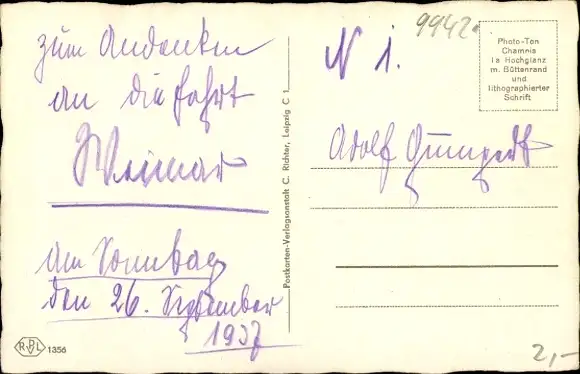 zum Andenken
an die Fahrt
Weimar
am Sonntag
den 26. September
1937
N 1.
9942
Photo-Ton
Chamnis
Ia Hochglanz
m. Büttenrand
und
lithographierter
Schrift
Adolf
Postkarten-Verlagsanstalt C. Richter, Leipzig C 1
RPL 1356
2,-